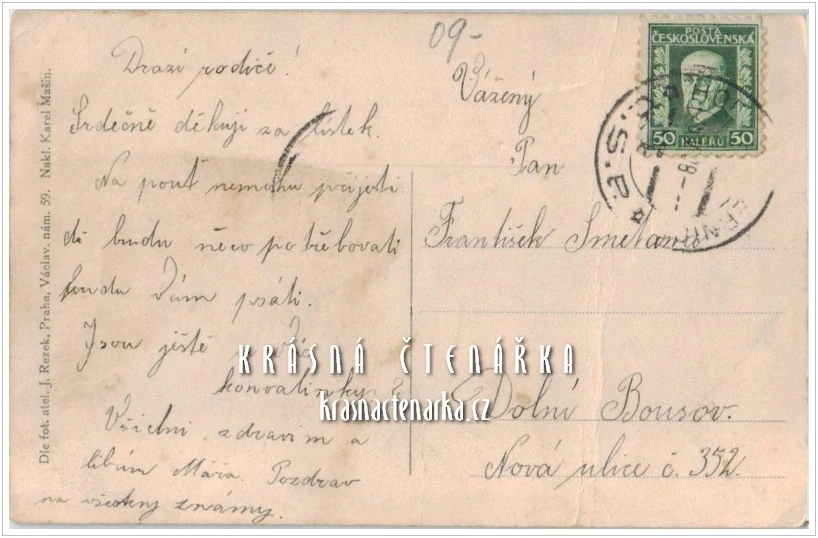 09-
Drazí rodiče!
Srdečně děkuji za lístek.
Na pouť nemohu přijeti
budu něco potřebovati
budu Vám psáti.
Jsou ještě u Vás
konvalinky?
Všichni zdravím a
líbám Máňa. Pozdrav
na všechny známy.
Vážený
Pan
František Smetana
Dolní Bousov.
Nová ulice č. 352.
POSTA
ČESKOSLOVENSKÁ
50 HALÉRŮ 50
Dle fot. atel. J. Rezek, Praha, Václav. nám. 59. Nakl. Karel Mašín.
KRÁSNÁ ČTENÁŘKA
krasnactenarka.cz